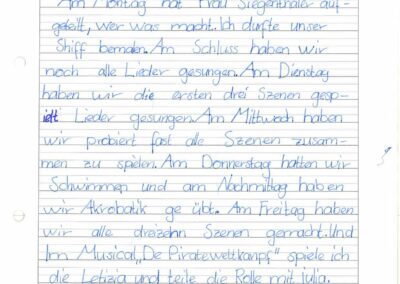 Am Montag hat Frau Siegenthaler auf-
geteilt, wer was macht. Ich durfte unser
Shiff bemalen. Am Schluss haben wir
noch alle Lieder gesungen. Am Dienstag
haben wir die ersten drei Szenen gesp-
ielt Lieder gesungen. Am Mittwoch haben
wir probiert fast alle Szenen zusam-
men zu spielen. Am Donnerstag hatten wir
Schwimmen und am Nachmittag haben
wir Akrobatik ge übt. Am Freitag haben
wir alle dreizehn Szenen gemacht. Und
Im Musical „De Piratewettkampf" spiele ich
die Letizia und teile die Rolle mit julia.